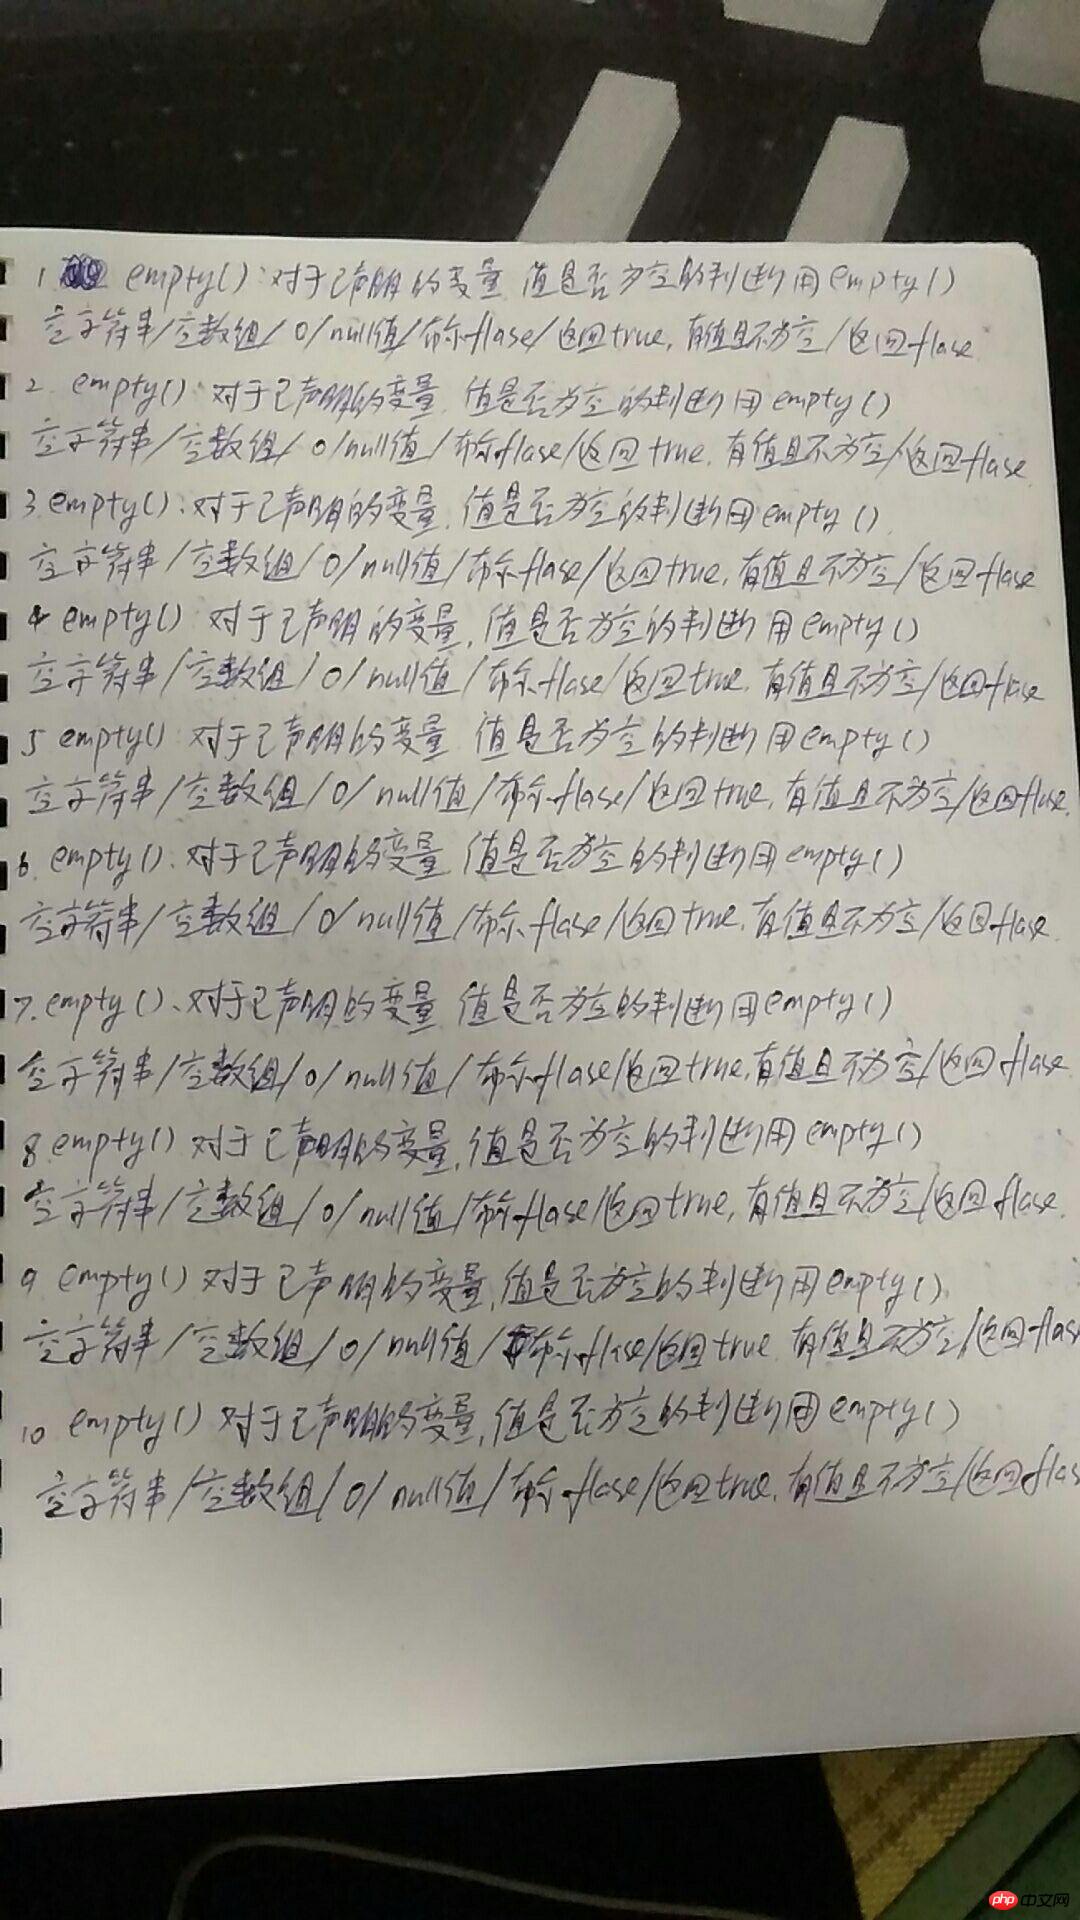 1 empty():对于已声明的变量 值是否为空的判断用empty()
空字符串/空数组/0/null值/布尔flase/返回true,有值且不为空/返回flase
2. empty():对于已声明的变量,值是否为空的判断用empty()
空字符串/空数组/0/null值/布尔flase/返回true,有值且不为空/返回flase
3.empty():对于已声明的变量,值是否为空的判断用empty()
空字符串/空数组/0/null值/布尔flase/返回true,有值且不为空/返回flase
4 empty():对于已声明的变量,值是否为空的判断用empty()
空字符串/空数组/0/null值/布尔flase/返回true,有值且不为空/返回flase
5 empty():对于已声明的变量 值是否为空的判断用empty()
空字符串/空数组/0/null值/布尔flase/返回true,有值且不为空/返回flase.
6. empty():对于已声明的变量 值是否为空的判断用empty()
空字符串/空数组/0/null值/布尔flase/返回true,有值且不为空/返回flase
7.empty()、对于已声明的变量,值是否为空的判断用empty()
空字符串/空数组/0/null值/布尔flase/返回true,有值且不为空/返回flase
8.empty()对于已声明的变量,值是否为空的判断用empty()
空字符串/空数组/0/null值/布尔flase/返回true,有值且不为空/返回flase.
9 empty()对于已声明的变量,值是否为空的判断用empty()
空字符串/空数组/0/null值/布尔flase/返回true 有值且不为空/返回flas
10 empty()对于已声明的变量,值是否为空的判断用empty()
空字符串/空数组/0/null值/布尔flase/返回true,有值且不为空/返回flas
php中文网